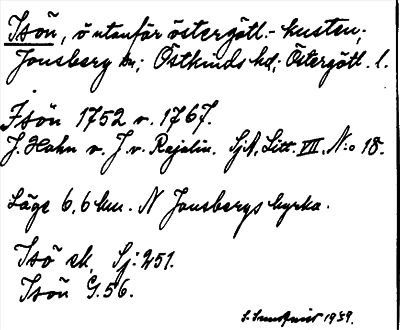 Isön, ö utanför östergötl.-kusten;
Jonsberg sn; Östkinds hd; Östergötl. l.
Isön 1752 v. 1767.
J. Hahn v. J. v. Rajalin. SjA, Litt. VII. N:o 18.
Läge 6,6 km. N Jonsbergs kyrka.
Isö ek. Sj: 251.
Isön G. 56.
1939.